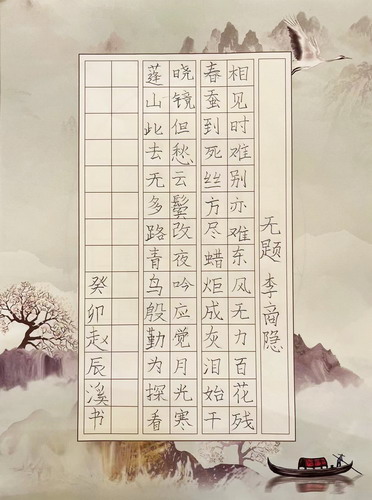 无题 李商隐
相见时难别亦难东风无力百花残
春蚕到死丝方尽蜡炬成灰泪始干
晓镜但愁云鬓改夜吟应觉月光寒
蓬山此去无多路青鸟殷勤为探看
癸卯赵辰溪书